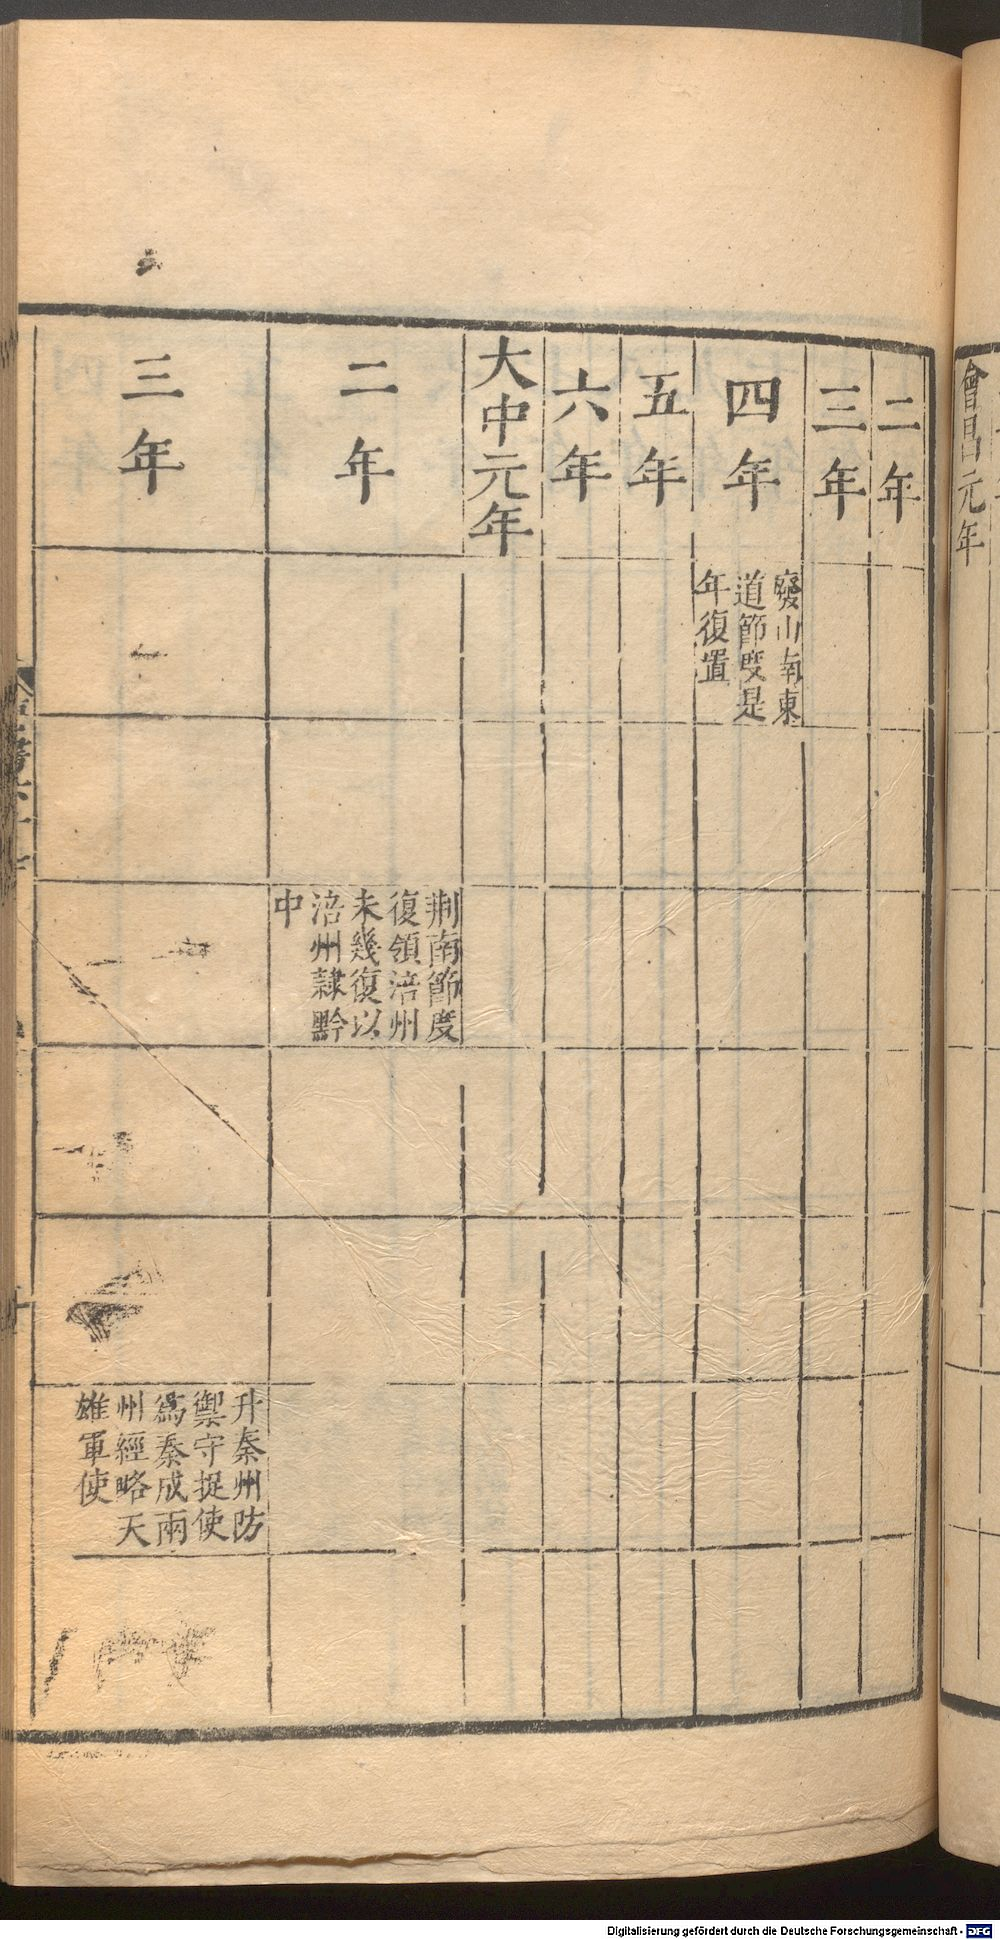 會昌元年
二年
三年
四年
廢山南東
道節度是
年復置
五年
六年
大中元年
二年
荆南節度
復領涪州
未幾復以
涪州隷黔
中
三年
升秦州防
禦守捉使
爲秦成兩
州經略天
雄軍使
Digitalisierung gefördert durch die Deutsche Forschungsgemeinschaft - DFG